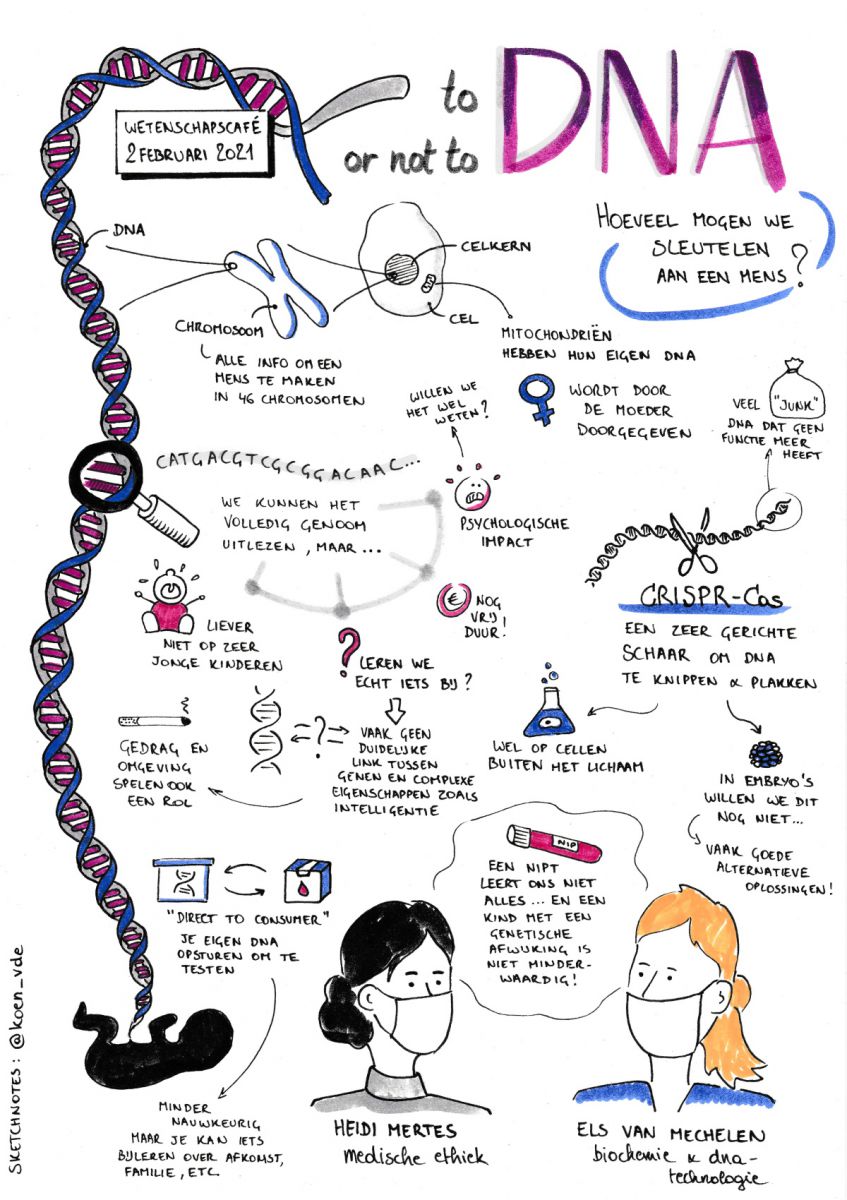 to
or not to
DNA
WETENSCHAPSCAFÉ
2 FEBRUARI 2021
HOEVEEL MOGEN WE
SLEUTELEN
AAN EEN MENS?
DNA
CHROMOSOOM
ALLE INFO OM EEN
MENS TE MAKEN
IN 46 CHROMOSOMEN
CELKERN
CEL
MITOCHONDRIËN
HEBBEN HUN EIGEN DNA
WORDT DOOR
DE MOEDER
DOORGEGEVEN
VEEL "JUNK"
DNA DAT GEEN
FUNCTIE MEER
HEEFT
CATGACGTCGCGGACAAC...
WE KUNNEN HET
VOLLEDIG GENOOM
UITLEZEN, MAAR...
WILLEN WE
HET WEL
WETEN?
PSYCHOLOGISCHE
IMPACT
€ NOG
VRIJ
DUUR!
LIEVER
NIET OP ZEER
JONGE KINDEREN
? LEREN WE
ECHT IETS BIJ?
VAAK GEEN
DUIDELIJKE
LINK TUSSEN
GENEN EN COMPLEXE
EIGENSCHAPPEN ZOALS
INTELLIGENTIE
?
GEDRAG EN
OMGEVING
SPELEN OOK
EEN ROL
CRISPR-Cas
EEN ZEER GERICHTE
SCHAAR OM DNA
TE KNIPPEN & PLAKKEN
WEL OP CELLEN
BUITEN HET LICHAAM
IN EMBRYO'S
WILLEN WE DIT
NOG NIET...
VAAK GOEDE
ALTERNATIEVE
OPLOSSINGEN!
"DIRECT TO CONSUMER"
JE EIGEN DNA
OPSTUREN OM TE
TESTEN
MINDER
NAUWKEURIG
MAAR JE KAN IETS
BIJLEREN OVER AFKOMST,
FAMILIE, ETC.
NIP
EEN NIPT
LEERT ONS NIET
ALLES ... EN EEN
KIND MET EEN
GENETISCHE
AFWIJKING IS
NIET MINDER-
WAARDIG!
HEIDI MERTES
medische ethiek
ELS VAN MECHELEN
biochemie & dna-
technologie
SKETCHNOTES: @koen_vde